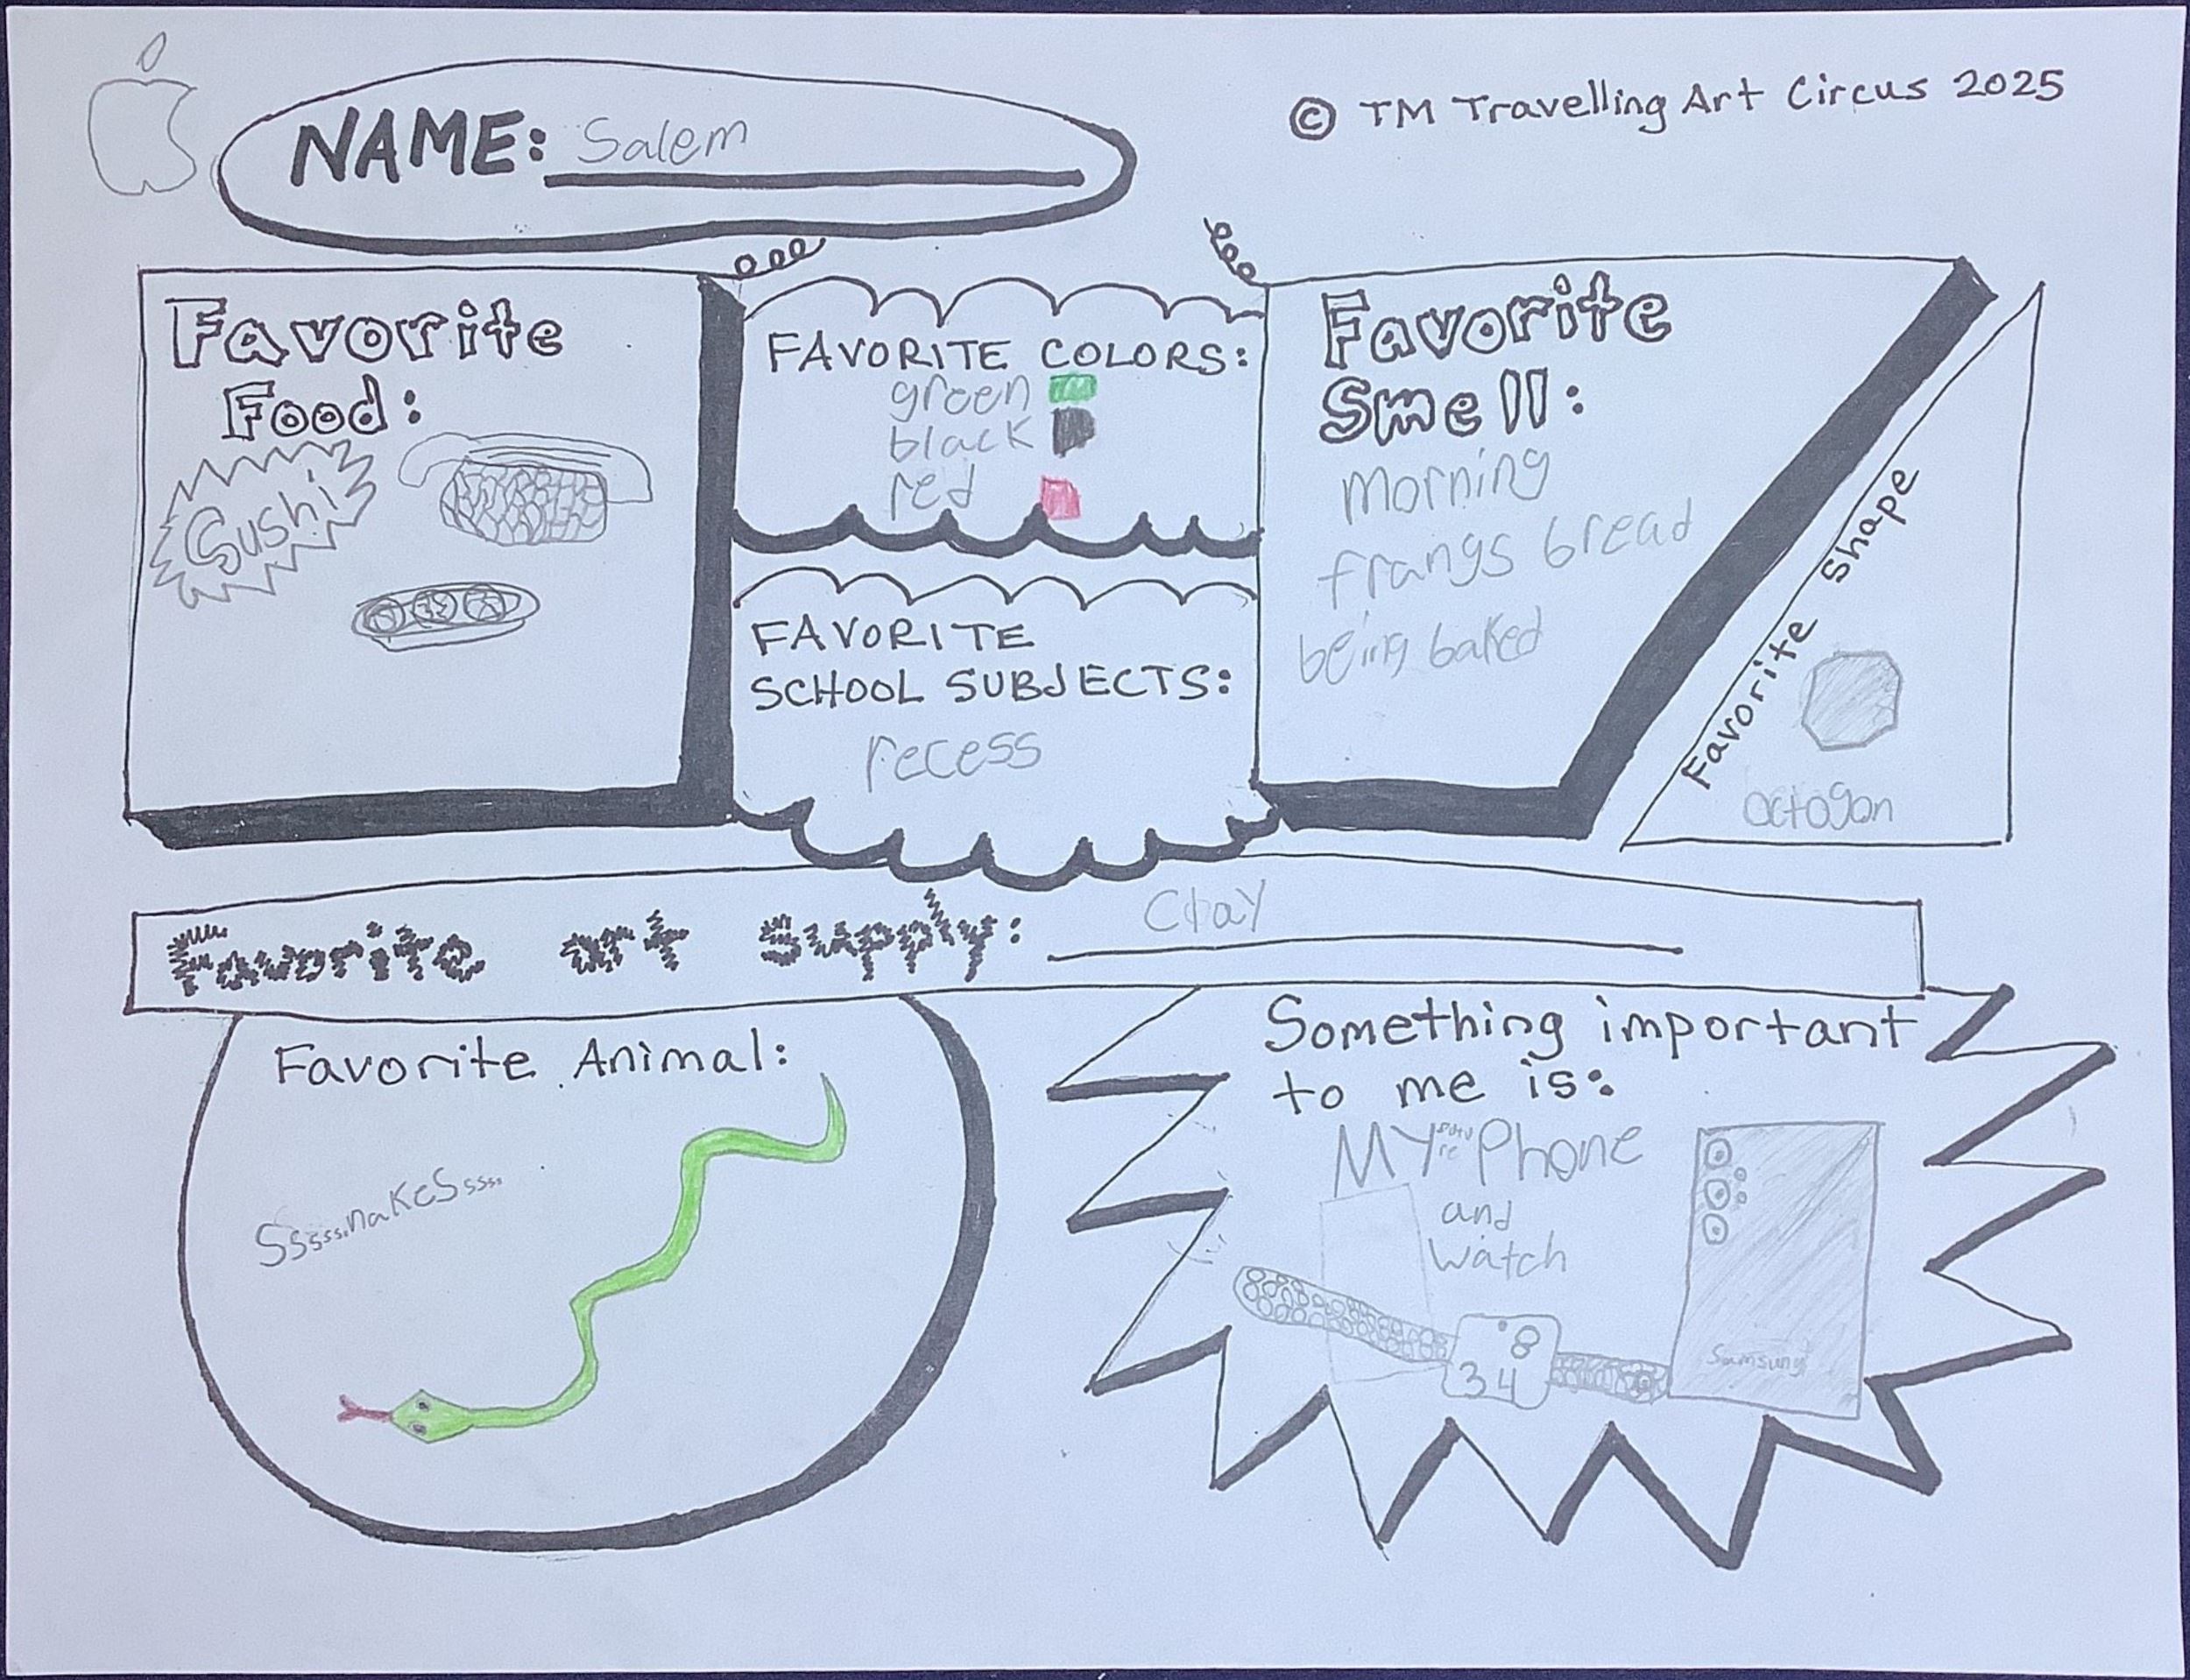 NAME: Salem
© TM Travelling Art Circus 2025
Favorite
Food:
Sushi
FAVORITE COLORS:
green
black
red
FAVORITE
SCHOOL SUBJECTS:
recess
Favorite
Smell:
morning
frangs bread
being baked
Favorite Shape
octogon
Favorite art Supply: Clay
Favorite Animal:
Sssss...nakesSssss...
Something important
to me is:
MY Phone
and
watch
8
34
Samsung